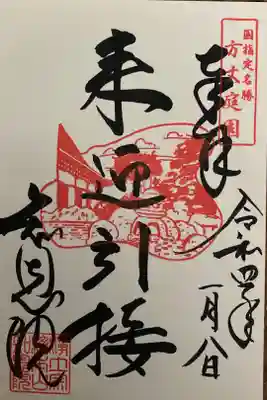 國指定名勝
方丈庭園
奉拝
令和四年
一月八日
来迎引接
知恩院